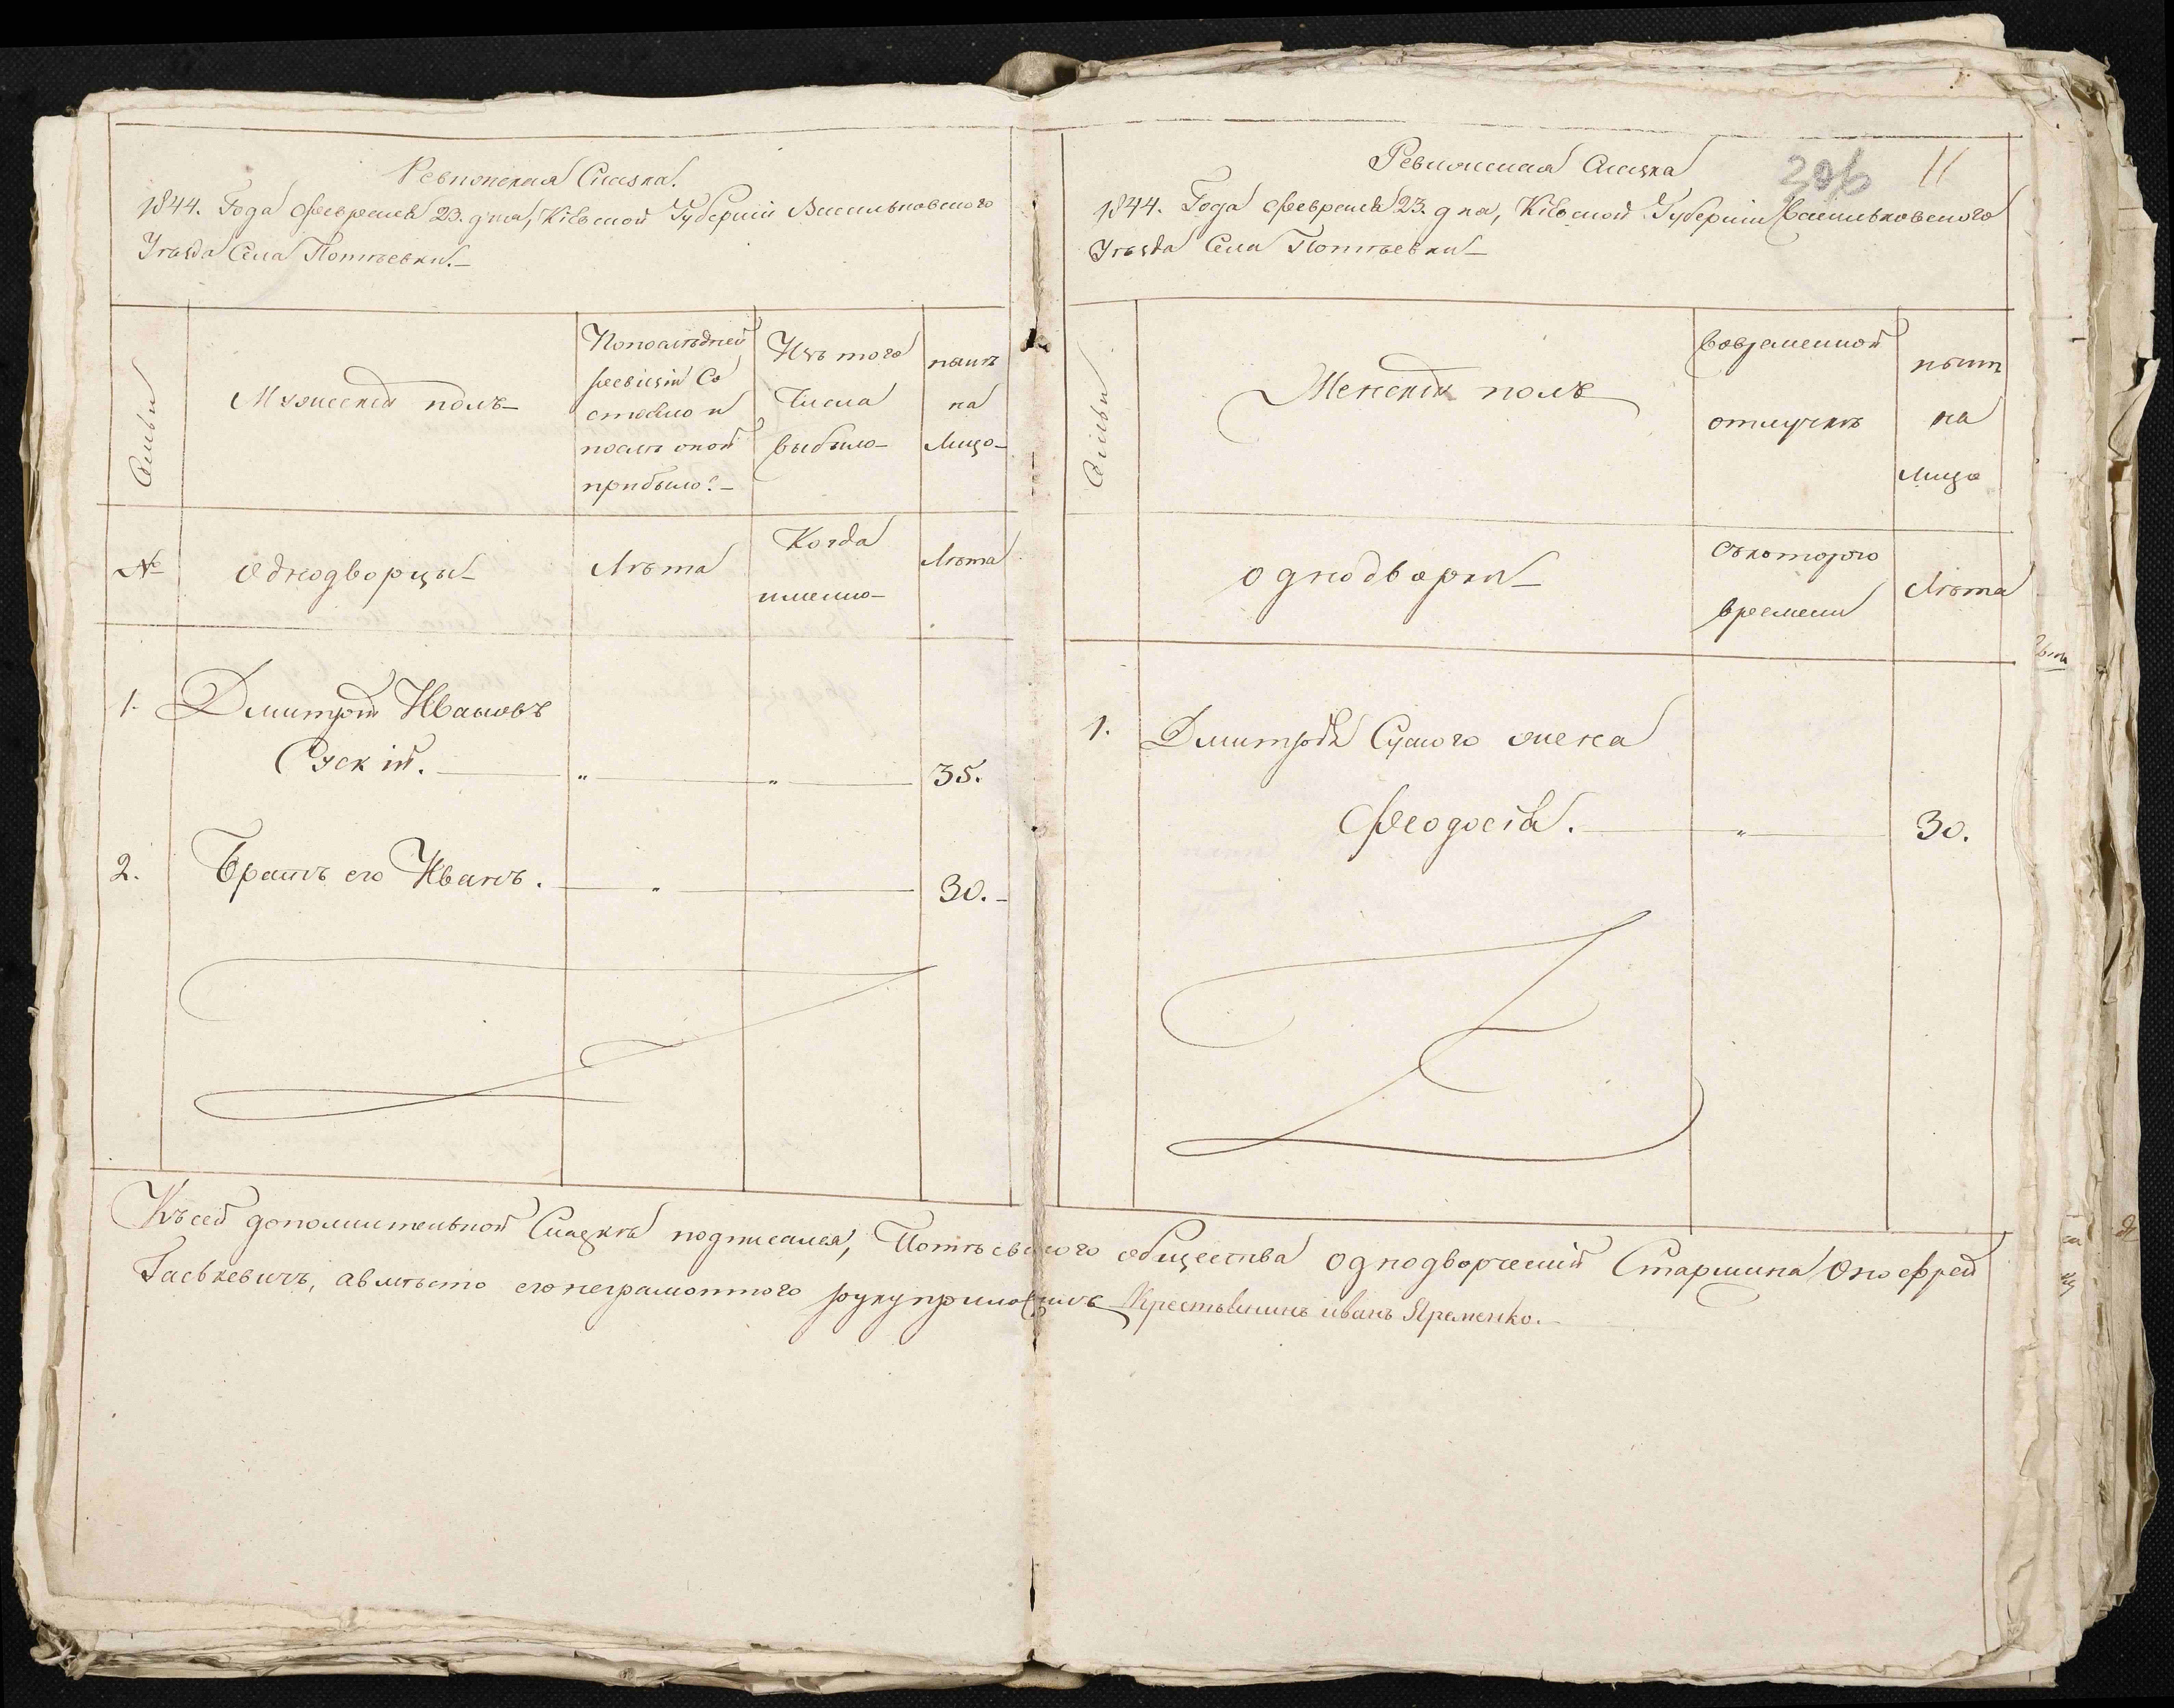 Ревизская Сказка.
1844. Года февраля 23. дня, Кіевской Губерніи Васильковского
Уѣзда Села Потіевки.
Семьи
Мужескій полъ
По послѣдней
ревизіи Со
стояло и
послѣ оной
прибыло
Изъ того
Числа
выбыло
нынѣ
на
Лицо
№
Однодворцы
Лѣта
Когда
именно
Лѣта
1. Дмитрій Ивановъ
Сускій. „ „ 35.
2. Братъ его Иванъ. „ 30.
Ревизская Сказка
306 11
1844. Года февраля 23. дня, Кіевской Губерніи Васильковского
Уѣзда Села Потіевки
Семьи
Женскій полъ
Во временной
отлучкѣ
нынѣ
на
лицо
однодворки
Съ которого
времени
Лѣта
1. Дмитрія Суского жена
Феодосія. „ 30.
Къ сей дополнительной Сказкѣ подписался, Потіевского общества однодворческій Старшина Оноофрей
Гаськевичъ, а вмѣсто его неграмотного руку приложилъ Крестьянинъ иванъ Яременко.